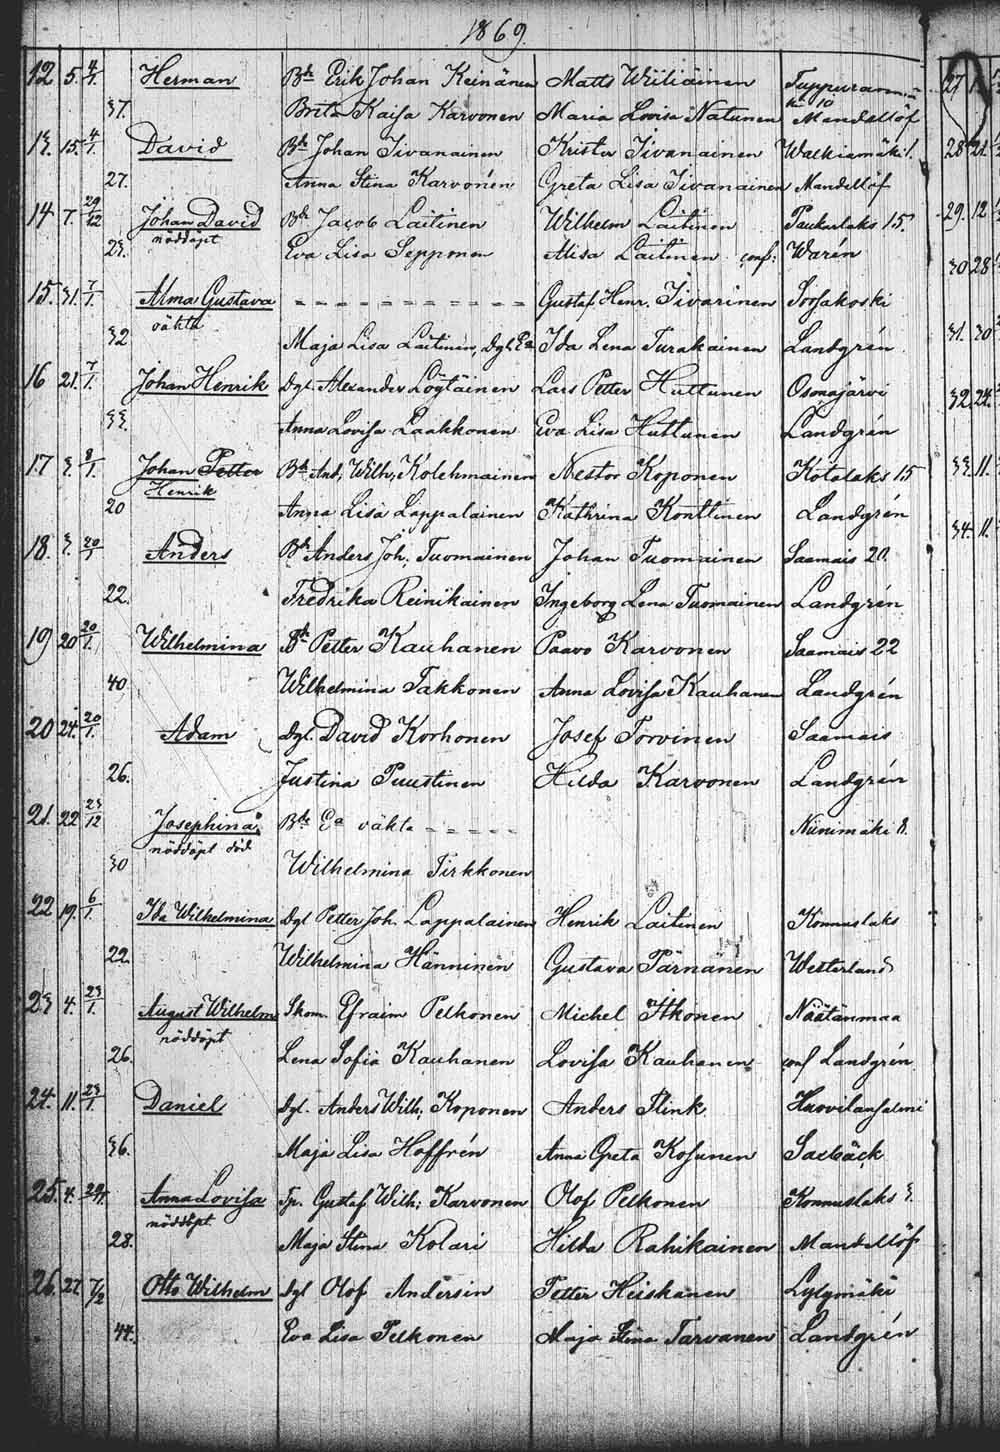 1869.
12 5. 4/1. Herman Bde Erik Johan Keinänen Matts Wiiliäinen Tuppuranmäki
№ 10
37. Brita Kaisa Karvonen Maria Lovisa Natunen Mandellöf
13. 15. 4/1. David Bde Johan Iivanainen Krister Iivanainen Walkiamäki 1.
27. Anna Stina Karvonen Greta Lisa Iivanainen Mandellöf
14 7. 29/12 Johan David Bde Jacob Laitinen Wilhelm Laitinen Paukarlaks 15.
nöddöpt
23. Eva Lisa Sepponen Alisa Laitinen conf: Warén
15. 31. 7/1. Alma Gustava - - - - - - - - - - - Gustaf Henr. Iivarinen Sorsakoski
oäkta
32 Maja Lisa Laitinen, Dgl. Ea Ida Lena Turakainen Landgrén
16 21. 7/1. Johan Henrik Dgl. Alexander Löytäinen Lars Petter Huttunen Osmajärvi
33. Anna Lovisa Laakkonen Eva Lisa Huttunen Landgrén
17 3. 8/1. Johan Petter Bde And. Wilh. Kolehmainen Nestor Koponen Kotalaks 15
Henrik
20 Anna Lisa Lappalainen Kathrina Konttinen Landgrén
18. 3. 20/1 Anders Bde Anders Joh. Tuomainen Johan Tuomainen Saamais 20.
22. Fredrika Reinikainen Ingeborg Lena Tuomainen Landgrén
19 20 20/1. Wilhelmina Bde Petter Kauhanen Paavo Karvonen Saamais 22
40. Wilhelmina Takkonen Anna Lovisa Kauhanen Landgrén
20 24. 20/1. Adam Dgl. David Korhonen Josef Torvinen Saamais
26. Justina Puustinen Hilda Karvonen Landgrén
21. 22 23/12 Josephina Bde Ea oäkta - - - - - Niinimäki 8.
nöddöpt död
30 Wilhelmina Tirkkonen
22 19. 6/1. Ida Wilhelmina Dgl Petter Joh. Lappalainen Henrik Laitinen Konnuslaks
22. Wilhelmina Hänninen Gustava Pärnänen Westerlund
23 4. 23/1. August Wilhelm Skom. Efraim Pelkonen Michel Itkonen Näätänmaa
nöddöpt
26. Lena Sofia Kauhanen Lovisa Kauhanen conf Landgrén
24. 11. 23/1. Daniel Dgl. Anders Wilh. Koponen Anders Flink Huovilansalmi
36. Maja Lisa Hoffrén Anna Greta Kosunen Saxbäck
25. 4. Anna Lovisa Tp. Gustaf Wilh: Karvonen Olof Pelkonen Konnuslaks 3.
nöddöpt
28. Maja Stina Kolari Hilda Rahikainen Mandellöf
26. 27. 7/2 Otto Wilhelm Dgl Olof Andersin Petter Heiskanen Lylymäki
44. Eva Lisa Pelkonen Maja Stina Tarvanen Landgrén
27
28 21.
29. 12.
30 28
31. 30
32. 24.
33. 11.
34. 11.